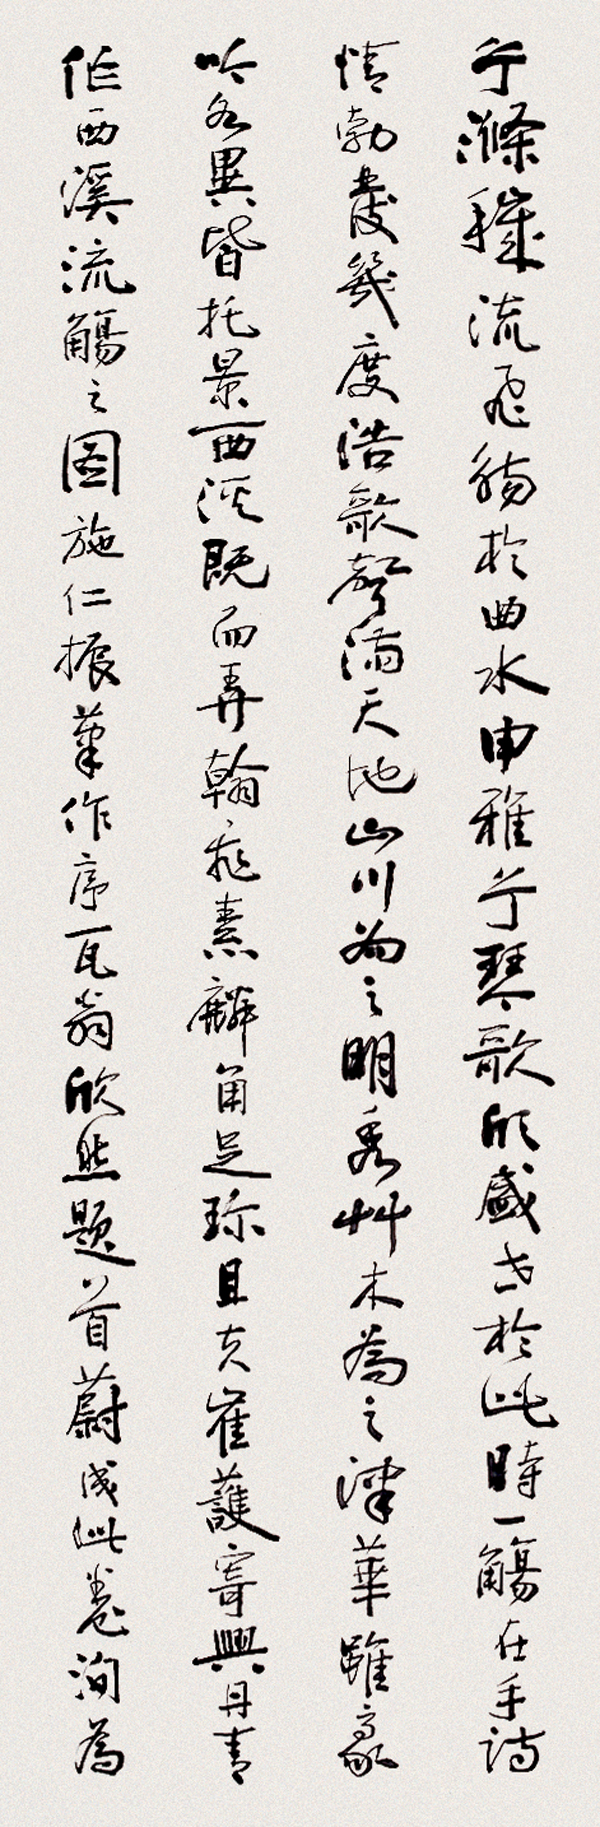 兮滌穢流飛觴於曲水申雅兮琴歌欣盛世於此時一觴在手詩
情勃發幾度浩歌聲滿天地山川為之明秀艸木為之津華雖豪
吟各異皆托景西溪既而弄翰庇素麟角足珍且夫崔護寄興丹青
作西溪流觴之圖施仁振筆作序瓦翁欣然題首蔚成此卷洵為